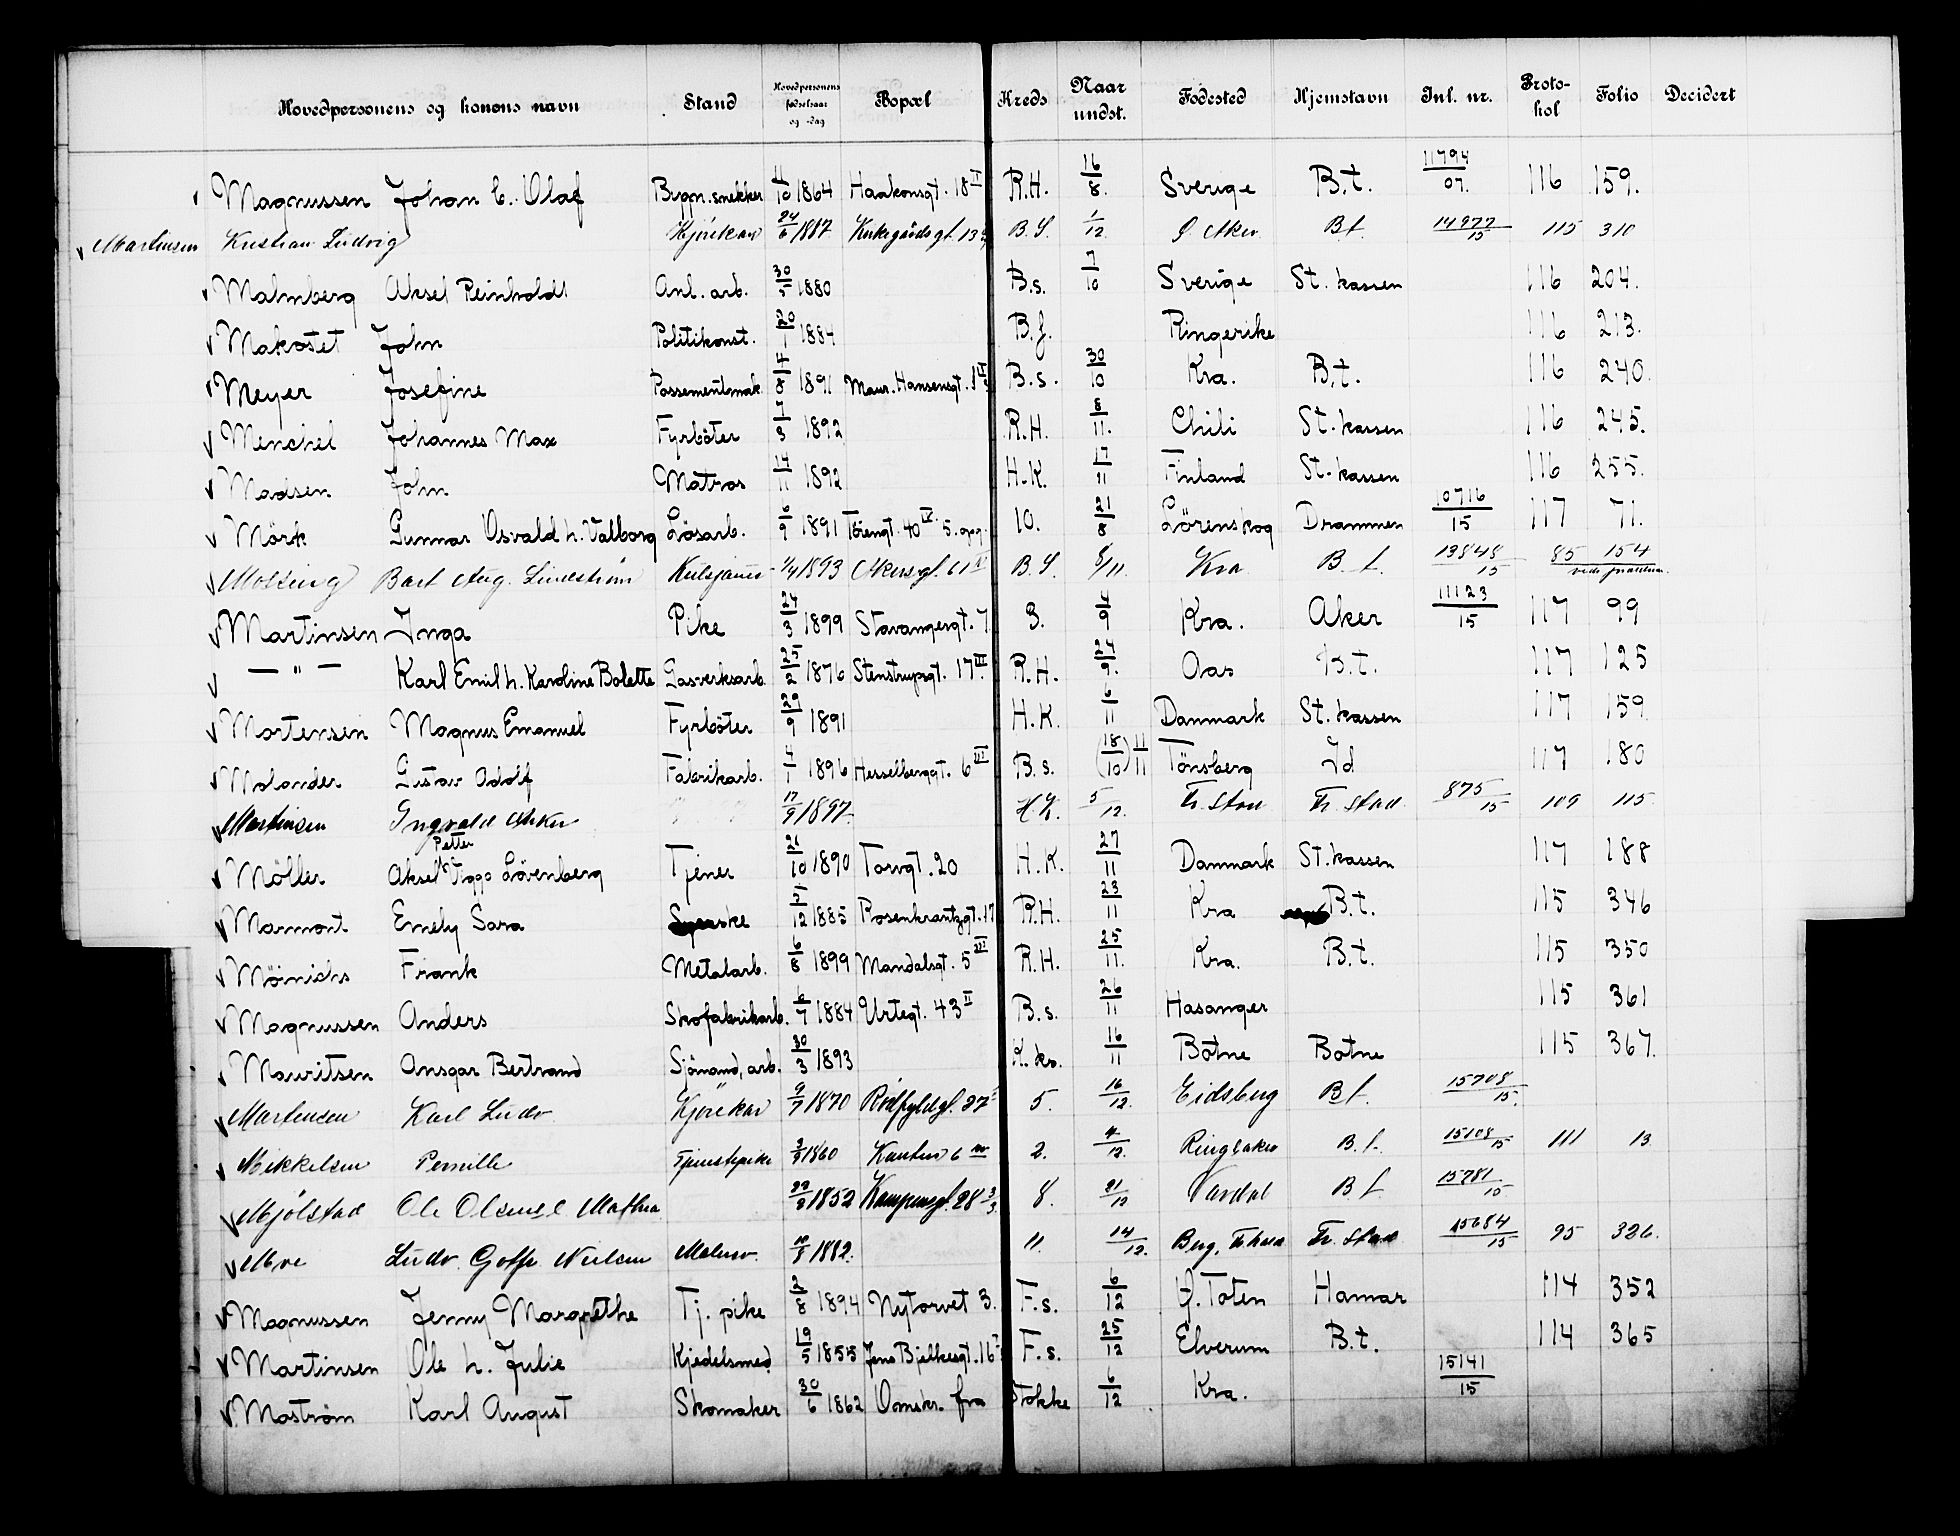 Hovedpersonens og konens navn Stand Hovedpersonens fødselsaar og -dag Bopæl Kreds Naar undst. Fødested Hjemstavn Inl. nr. Proto-kol Folio Decidert
Magnussen Johan C. Olaf Bygn. snekker 4/10 1864 Haakonsgt. 18 II R.H. 16/8. Sverige B.t. 11794/07. 116 159.
Martinsen Kristian Ludvig Kjørekar 24/6 1887 Kirkegårdsgt. 13 B.S. 1/12 Ø. Aker B t. 14977/15 115 310
Malmberg Aksel Reinholdt Anl. arb. 30/5 1880 B.s. 7/10 Sverige St. kassen 116 204.
Makostet John Politikonst. 20/1 1884 B.f. Ringerike 116 213.
Meyer Josefine Possementmak. 4/8 1891 Maur. Hansensgt. B.s. 30/10 Kra. B.t. 116 240.
Menchel Johannes Max Fyrböter 7/3 1892 R.H. 8/11. Chili St. kassen 116 245.
Madsen John Matros 14/11 1892 H.K. 17/11 Finland St. kassen 116 255.
Mörk Gunnar Osvald h. Valborg Lösarb. 6/9 1891 Töiengt. 40 IV 5. opg. 10. 21/8 Lörenskog Drammen 10716/15 117 71.
Bart Aug. Lindström 1/4 1893 Akersgt. 61 B.S. 8/11. Kra B. t. 13848/15 85 154
Martinsen Inga Pike 24/3 1899 Stavangergt. 7 3. 4/9 Kra. Aker 11123/15 117 99
— " — Karl Emil h. Karoline Bolette Gasverksarb. 25/2 1876 Stenstrupsgt. 17 III R.H. 24/9. Oas B.t. 117 125
Mortensen Magnus Emanuel Fyrböter 29/9 1891 H.K. 6/11 Danmark St. kassen 117 159.
Molander Gustav Adolf Fabrikarb. 4/1 1896 Hesselberggt. 6 III B.s. (18/10) 11/11 Tönsberg Id 117 180
Martinsen Ingvald Asker 17/9 1897. H.K. 5/12. Fr. stad Fr. stad 875/15 109 115.
Möller Aksel Petter Viggo Lövenberg Tjener 21/10 1890 Torvgt. 20 H.K. 27/11 Danmark St. kassen 117 188
Mamont Emely Sara 5/12 1885 Rosenkrantzgt. 17 R.H. 23/11 Kra B.t. 115 346
Möinichs Frank Metalarb. 6/8 1899 Mandalsgt. 5 III R.H. 25/11. Kra. B.t. 115 350
Magnussen Anders Skofabrikarb. 6/7 1884 Urtegt. 43 II B.s. 26/11 Hasanger 115 361
Mauritsen Ansgar Bertrand Sjömand, arb. 30/3 1893 K. ks. 16/11 Botne Botne 115 367.
Martensen Karl Ludv. Kjørekar 9/7 1870 Rødfyldgt. 27 5. 16/12. Eidsberg B t. 15708/15.
Mikkelsen Pernille Tjenestepike 3/9 1860 6 2. 4/12. Ringsaker B. t. 15108/15 111 13
Mjölstad Ole Olsen 22/8 1852 Kampensgt. 28 8. 21/12 Vardal B t. 15781/15
Moe Ludv. Nielsen 10/8 1882. 11. 14/12. Berg, Fr. stad 15684/15 95 326.
Magnussen Jenny Margrethe Tj. pike 2/8 1894 Nytorvet 3. F.s. 6/12 Ø. Toten Hamar 114 352
Martinsen Ole h. Julie Kjedelsmed 19/5 1855 Jens Bjelkesgt. 16 F.s. 25/12 Elverum B.t. 114 365
Moström Karl August Skomaker 30/6 1862 Omskr. fra Stokke 6/12 Kra. 15141/15